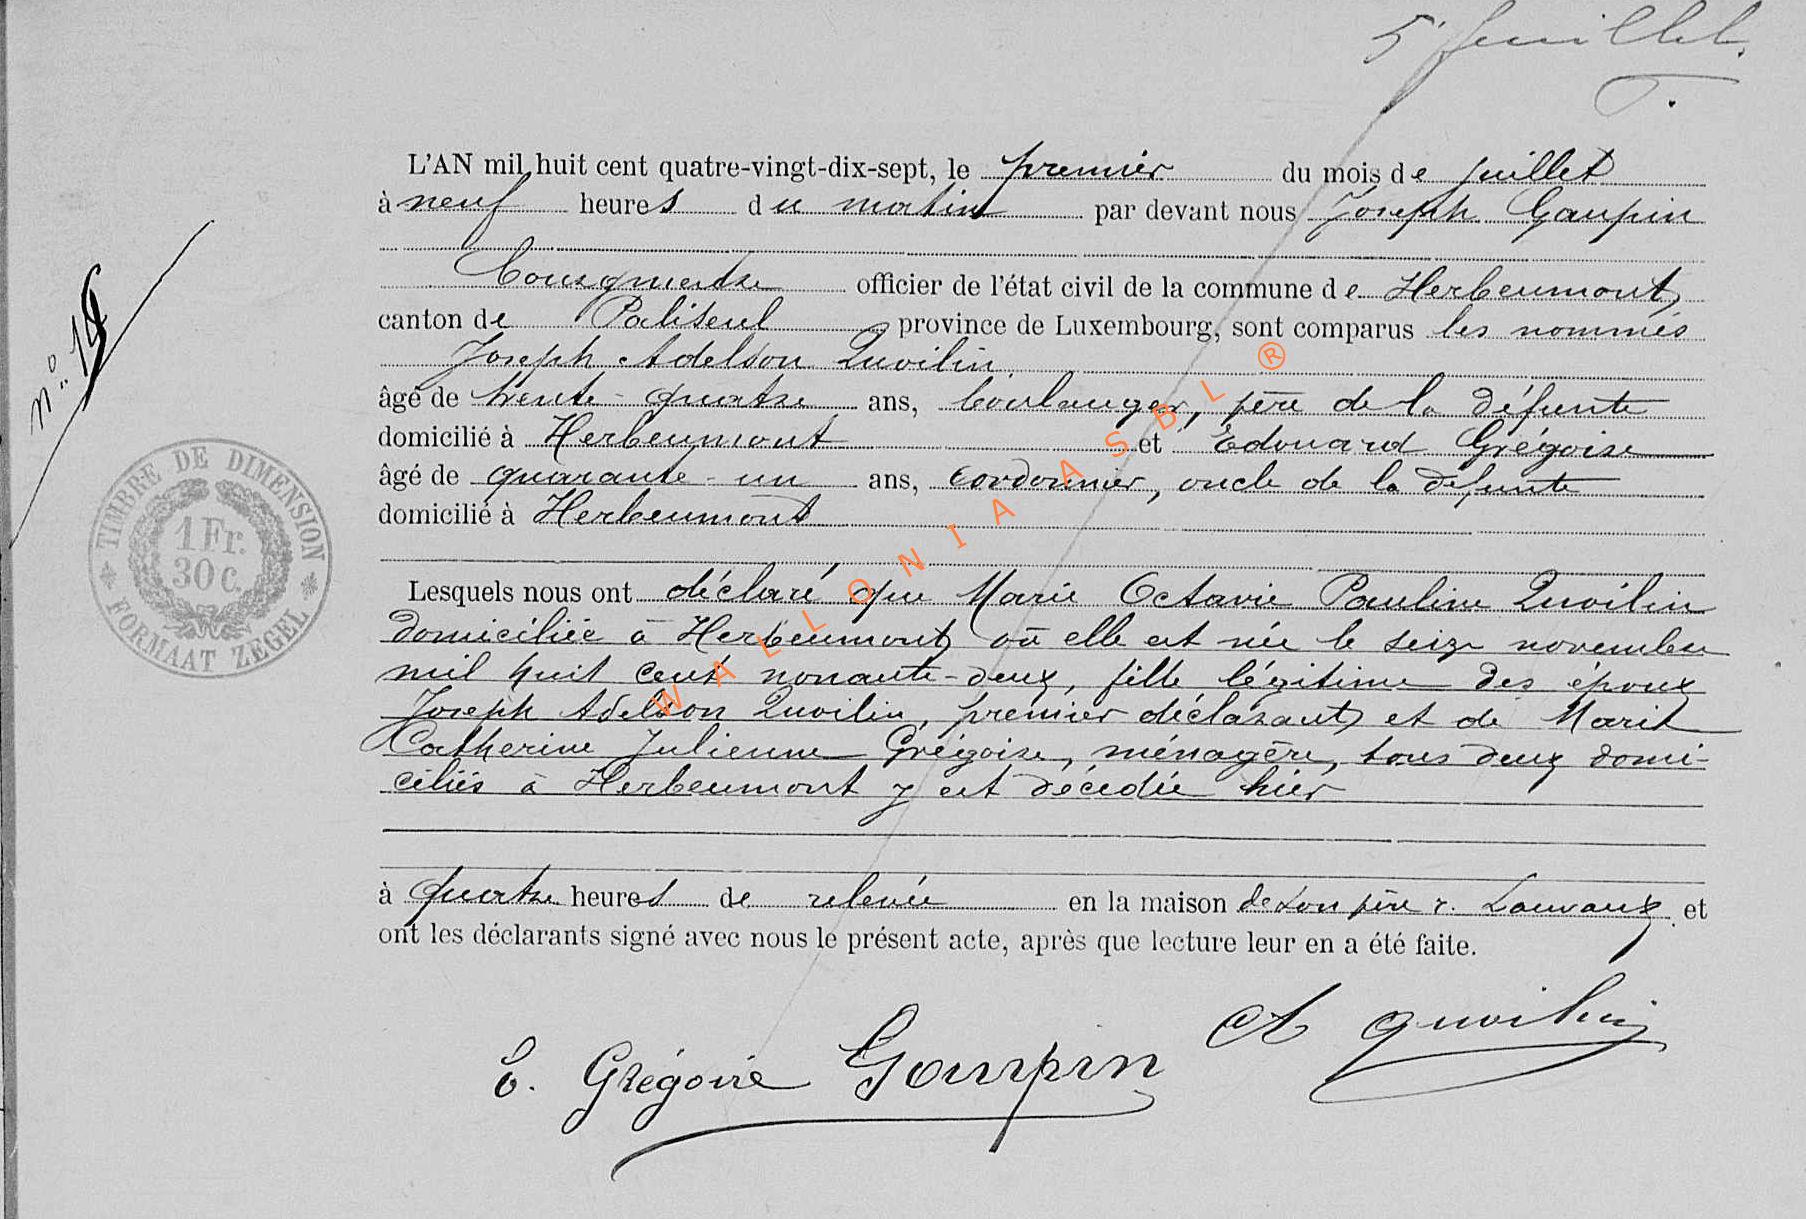 5e feuillet.
L'AN mil huit cent quatre-vingt-dix-sept, le premier du mois de juillet
à neuf heures du matin par devant nous Joseph Gaupin
Bourgmestre officier de l'état civil de la commune de Herbeumont,
canton de Paliseul province de Luxembourg, sont comparus les nommés
Joseph Adelson Quoilin
âgé de trente-quatre ans, boulanger, père de la défunte
domicilié à Herbeumont et Edouard Grégoire
âgé de quarante-un ans, cordonnier, oncle de la défunte
domicilié à Herbeumont
Lesquels nous ont déclaré que Marie Octavie Pauline Quoilin
domiciliée à Herbeumont, où elle est née le seize novembre
mil huit cent nonante-deux, fille légitime des époux
Joseph Adelson Quoilin, premier déclarant, et de Marie
Catherine Julienne Grégoire, ménagère, tous deux domi-
ciliés à Herbeumont y est décédée hier
à quatre heures de relevée en la maison de son père r. Lauvaux, et
ont les déclarants signé avec nous le présent acte, après que lecture leur en a été faite.
A Quoilin
E. Grégoire Gaupin
TIMBRE DE DIMENSION
1 Fr.
30 C.
FORMAAT ZEGEL
WALLONIA ASBL ®